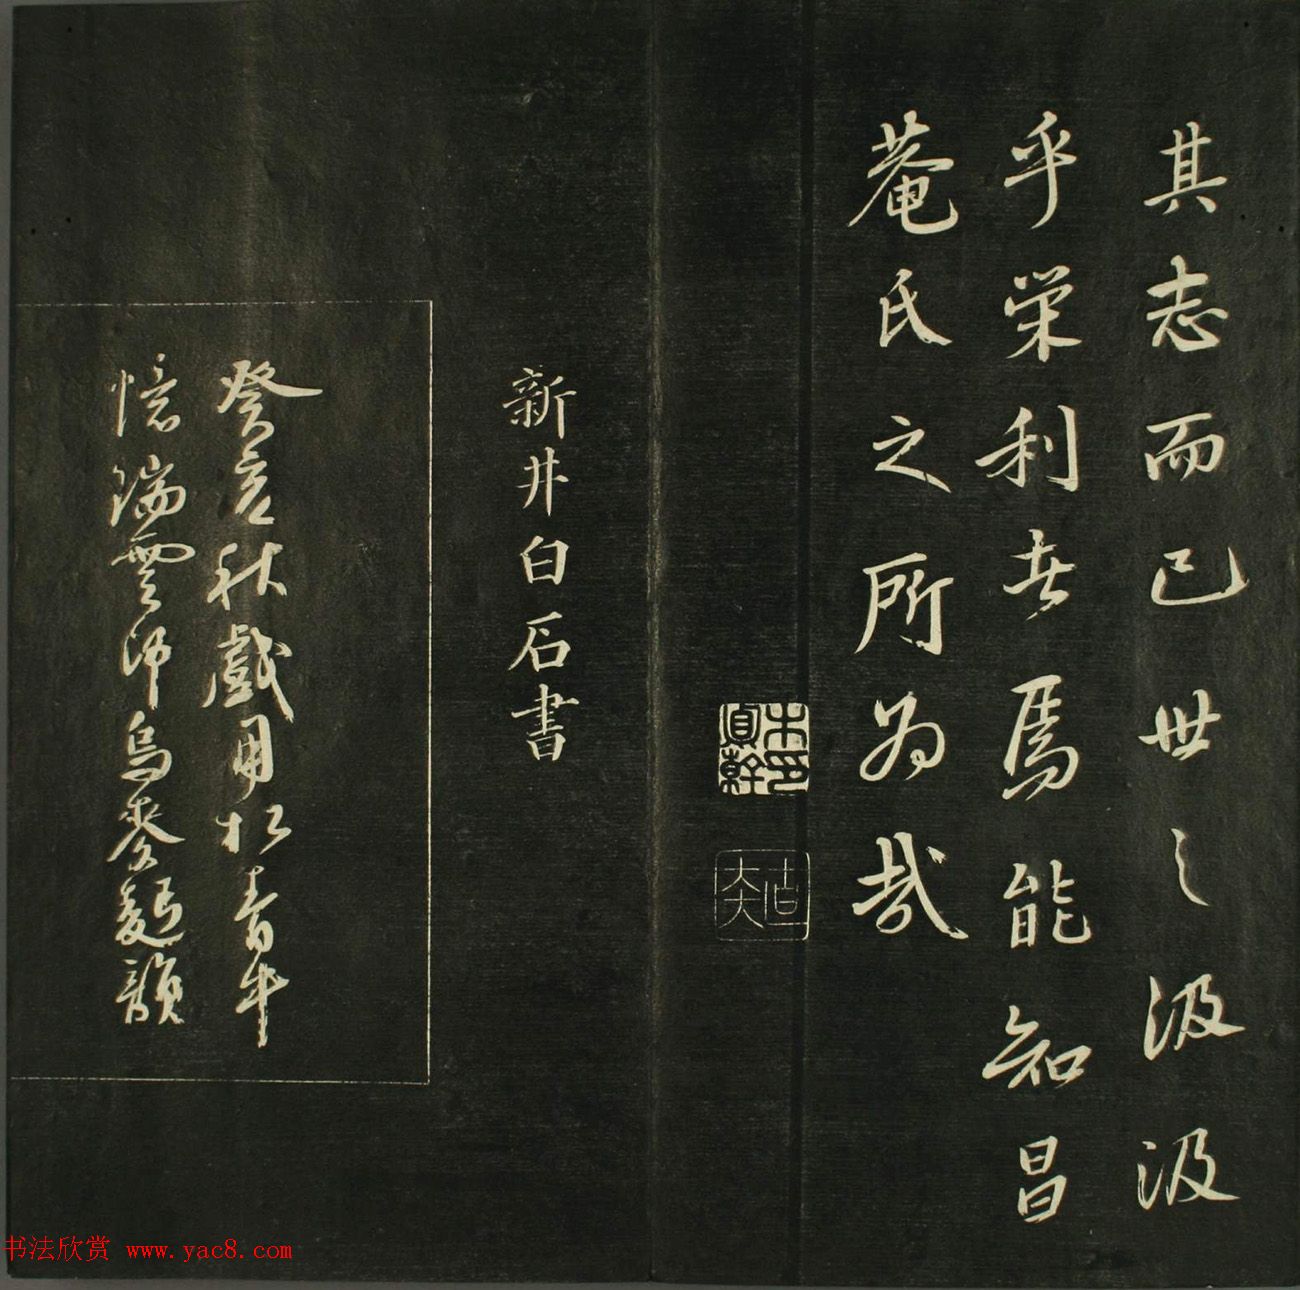 其志而已世之汲汲
乎栄利者焉能知昌
菴氏之所為哉
新井白石書
癸亥秋戯用松青牛
憶瑞雲沛烏麥麹韻
书法欣赏 www.yac8.com